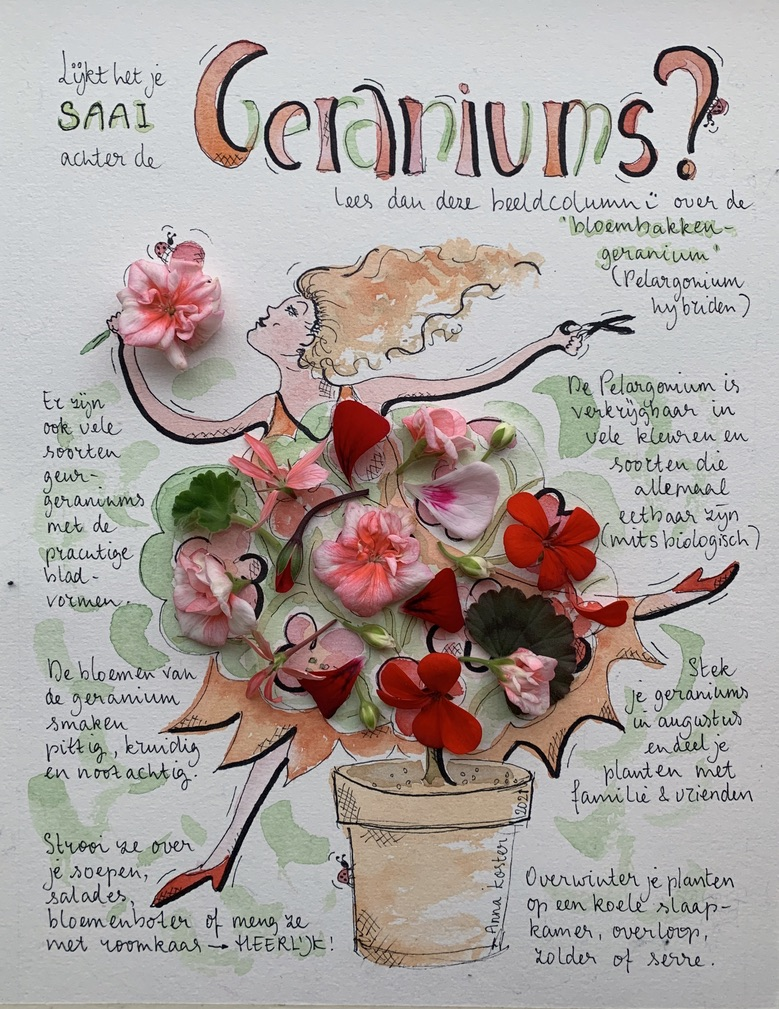 Lijkt het je
SAAI
achter de
Geraniums?
lees dan deze beeldcolumn i over de
"bloembakken-
geranium"
(Pelargonium
hybriden)
Er zijn
ook vele
soorten
geur-
geraniums
met de
prachtige
blad-
vormen.
De Pelargonium is
verkrijgbaar in
vele kleuren en
soorten die
allemaal
eetbaar zijn
(mits biologisch)
De bloemen van
de geranium
smaken
pittig, kruidig
en nootachtig.
Stek
je geraniums
in augustus
en deel je
planten met
familie & vrienden
Strooi ze over
je soepen,
salades,
bloemenboter of meng ze
met roomkaas → HEERLIJK!
Anna Koster 2021
Overwinter je planten
op een koele slaap-
kamer, overloop,
zolder of serre.